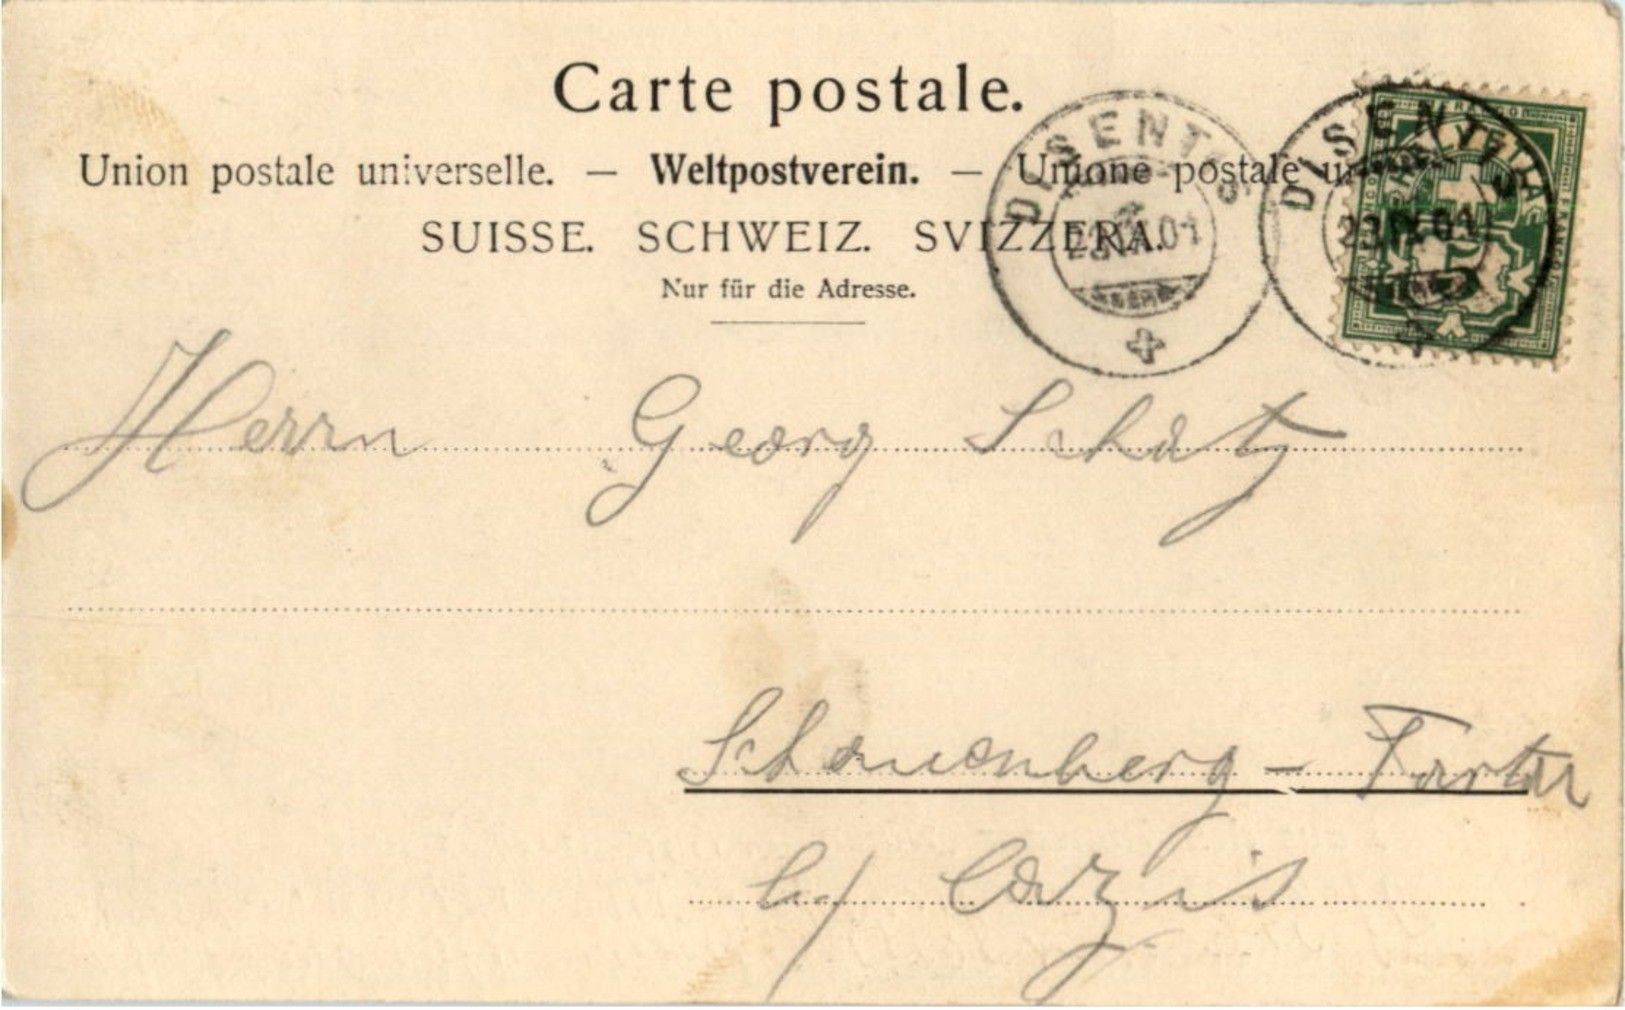 Carte postale.
Union postale universelle. — Weltpostverein. — Unione postale
SUISSE. SCHWEIZ. SVIZZERA.
Nur für die Adresse.
DISENTIS
23.IX.01
DISENTIS
23.IX.01
HELVETIA
FRANCO
Herrn Georg Schatz
Schauenberg - Tartar
b/ Cazis